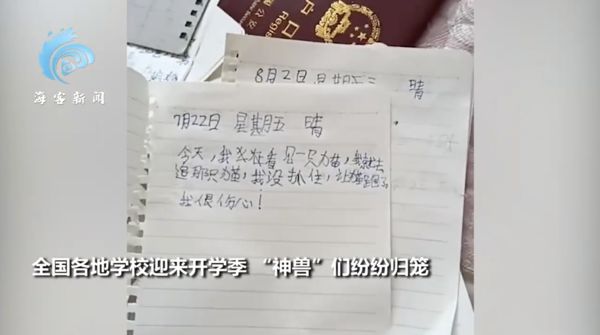 海客新闻
户口
Regist
8月2日 星期三 晴
7月22日 星期五 晴
今天，我看见一只猫，我就去
追那只猫，我没抓住，让猫跑了
我很伤心！
全国各地学校迎来开学季 “神兽”们纷纷归笼